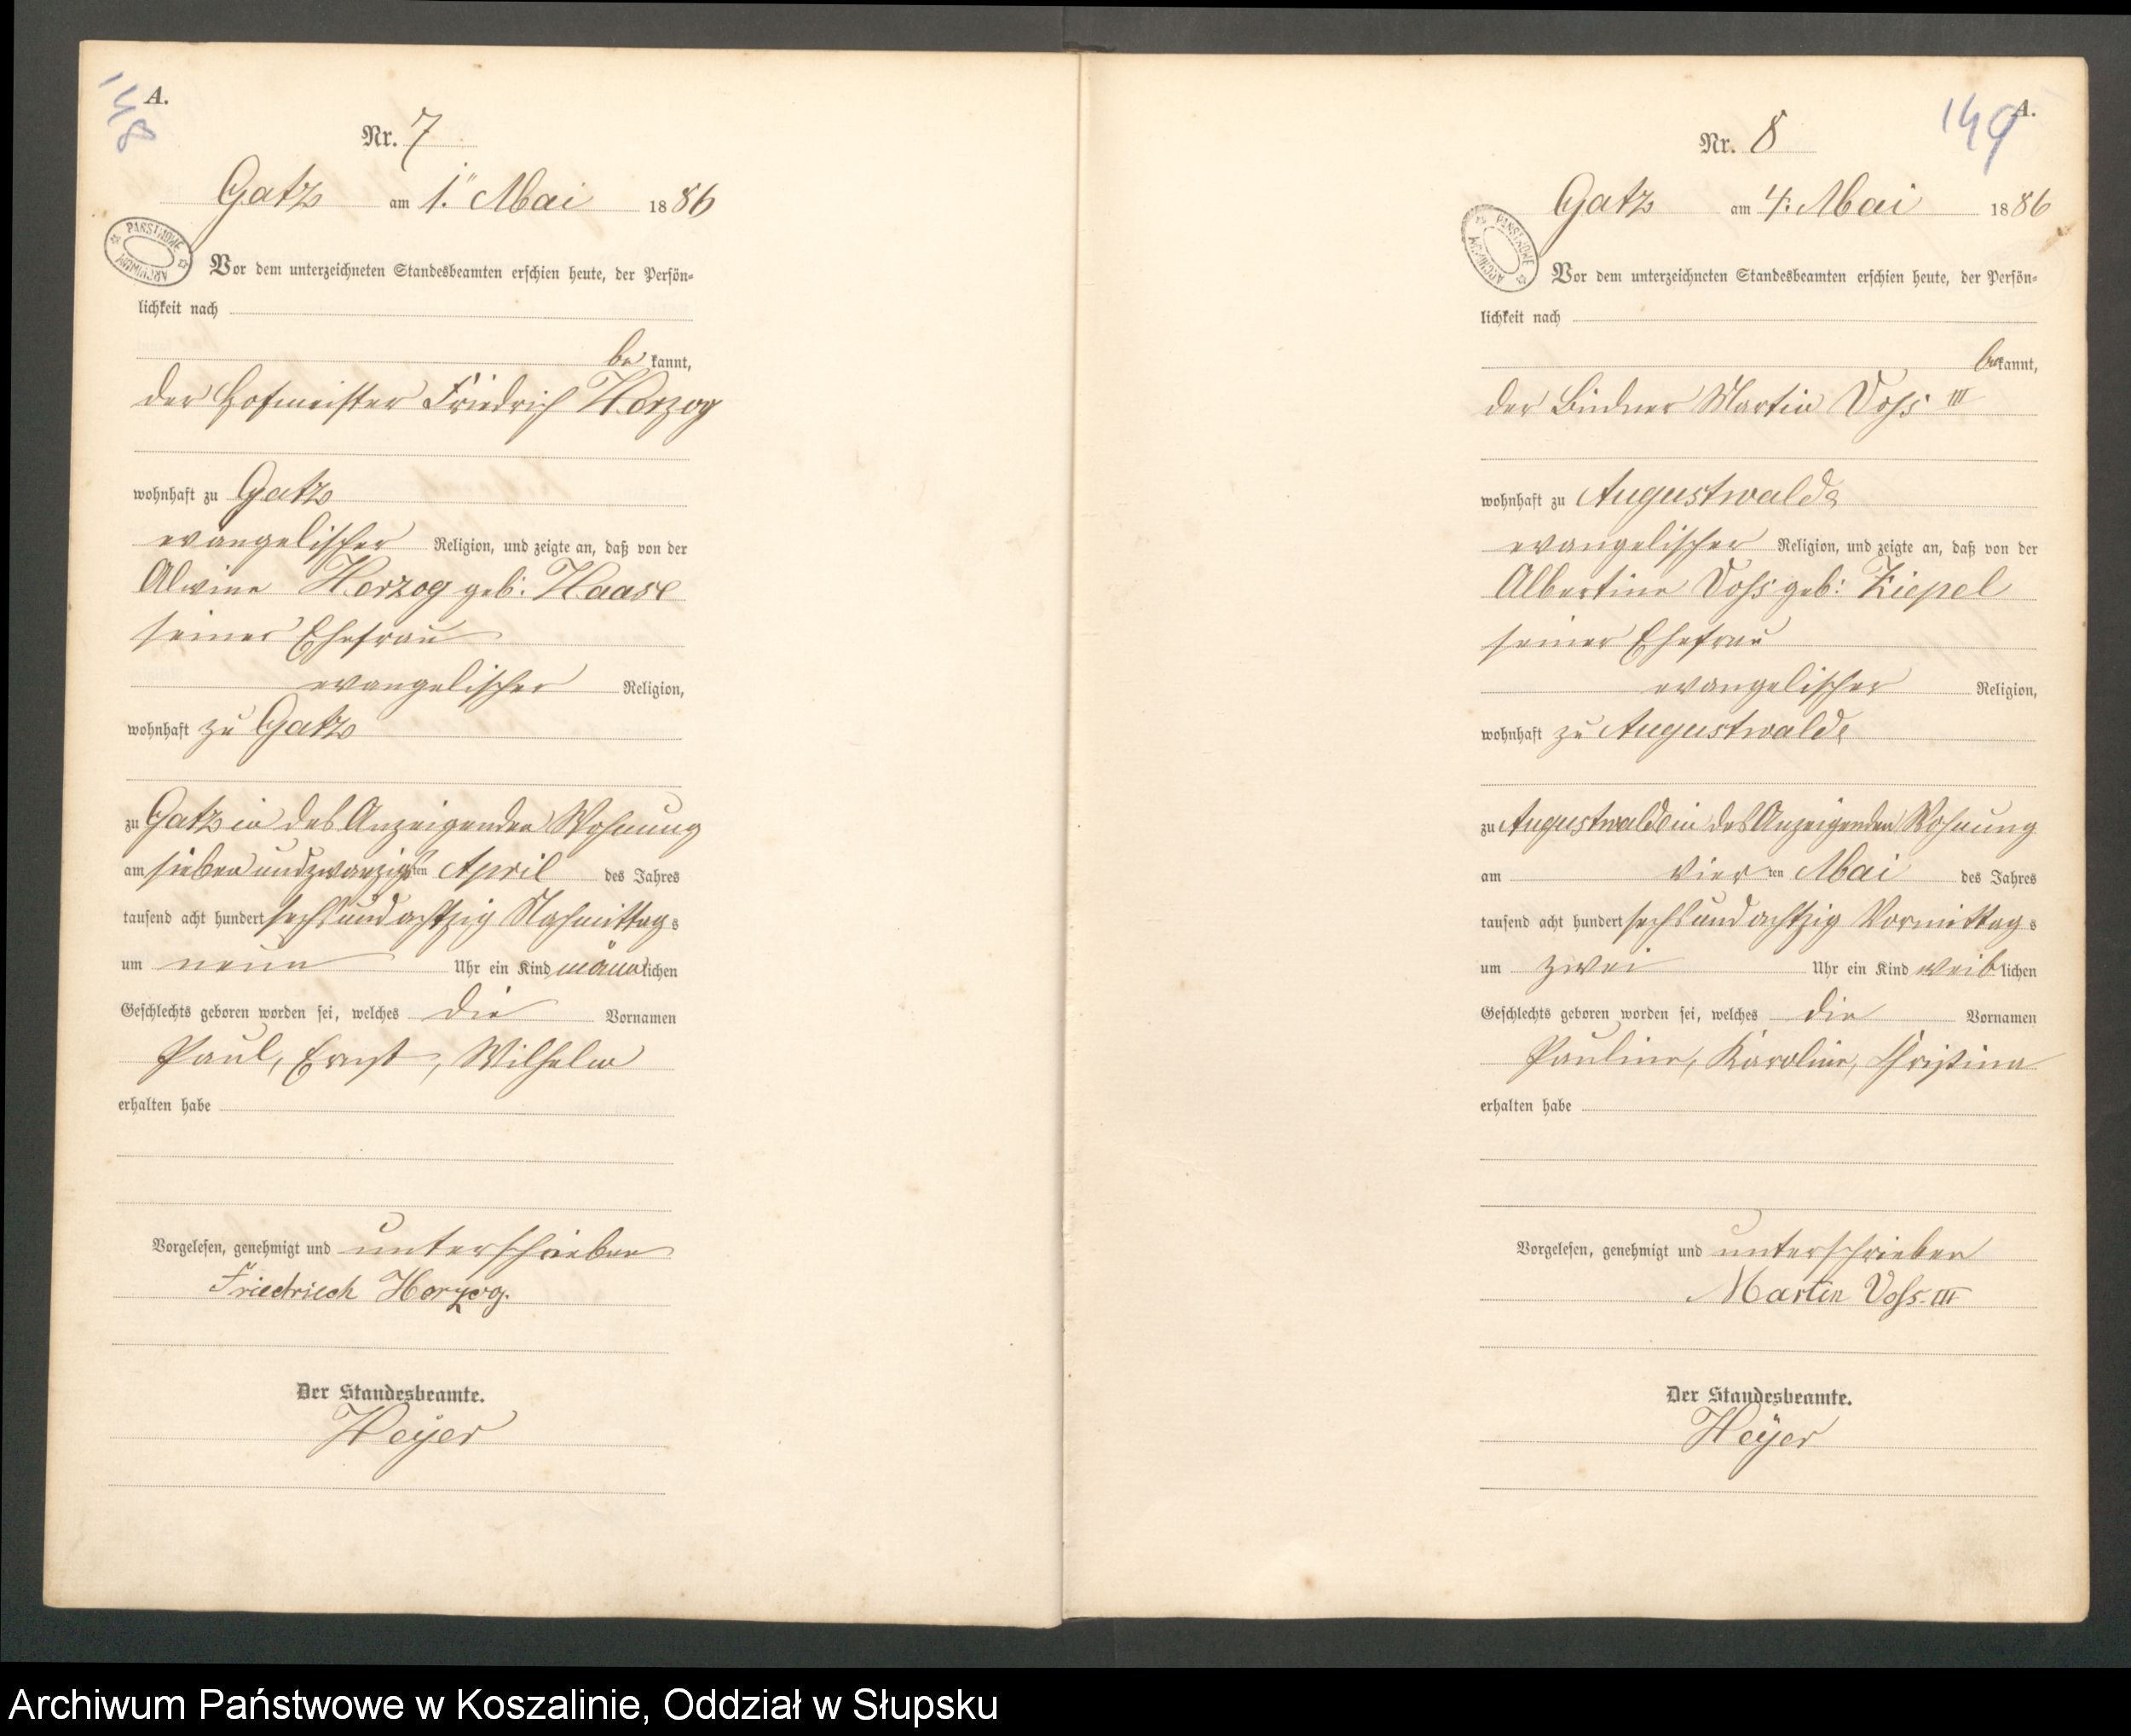 148
A.
Nr. 7
Gatz am 1ten Mai 1886
PAŃSTWOWE ARCHIWUM
Vor dem unterzeichneten Standesbeamten erschien heute, der Persön-
lichkeit nach
be kannt,
der Hofmeister Friedrich Herzog
wohnhaft zu Gatz
evangelischer Religion, und zeigte an, daß von der
Alwine Herzog geb. Haase
seiner Ehefrau
evangelischer Religion,
wohnhaft zu Gatz
zu Gatz in des Anzeigenden Wohnung
am sieben und zwanzigsten April des Jahres
tausend acht hundert sechs und achtzig Nachmittags
um neun Uhr ein Kind männlichen
Geschlechts geboren worden sei, welches die Vornamen
Paul, Ernst, Wilhelm
erhalten habe
Vorgelesen, genehmigt und unterschrieben
Friedriech Herzog.
Der Standesbeamte.
Heyer
149
A.
Nr. 8
Gatz am 4. Mai 1886
PAŃSTWOWE ARCHIWUM
Vor dem unterzeichneten Standesbeamten erschien heute, der Persön-
lichkeit nach
bekannt,
der Büdner Martin Voss III
wohnhaft zu Augustwalde
evangelischer Religion, und zeigte an, daß von der
Albertine Voss geb: Kiepel
seiner Ehefrau
evangelischer Religion,
wohnhaft zu Augustwalde
zu Augustwalde in des Anzeigenden Wohnung
am vierten Mai des Jahres
tausend acht hundert sechs und achtzig Vormittags
um zwei Uhr ein Kind weiblichen
Geschlechts geboren worden sei, welches die Vornamen
Pauline, Karoline, Christina
erhalten habe
Vorgelesen, genehmigt und unterschrieben
Martin Voss. III
Der Standesbeamte.
Heyer
Archiwum Państwowe w Koszalinie, Oddział w Słupsku